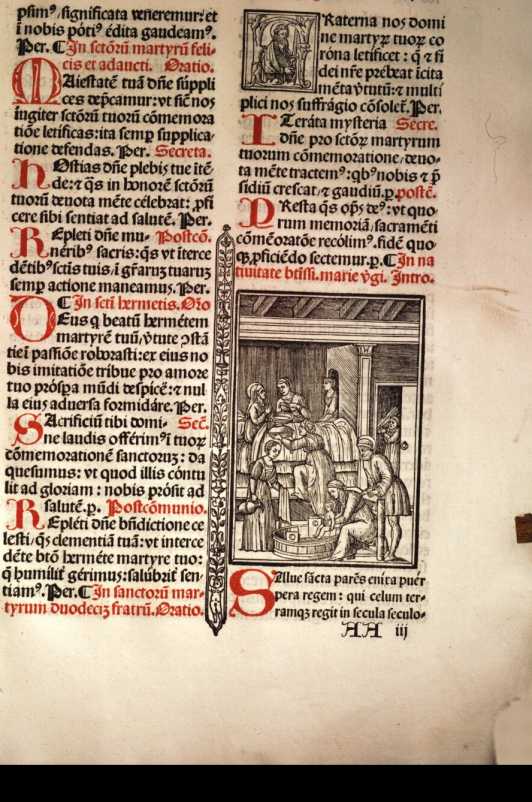 psimꝰ/significata veneremur: et
ī nobis pótiꝰ édita gaudeamꝰ.
Per. ℂ In sctórū martyrū feli-
cis et adaucti. Oratio.
MAiestatē tuā dñe súppli
ces dep̄camur: vt sic̄ nos
iugiter sctórū tuorū cómemora
tióe letíficas: ita semꝑ supplica-
tione defendas. Per. Secreta.
HOstias dñe plebis tue itē-
de: ⁊ q̄s in honorē sctórū
tuorū deuota mēte célebrat: ꝓfi
cere sibi sentiat ad salutē. Per.
REpleti dñe mu- Postcō.
neribꝰ sacris: q̄s vt iterce
dētibꝰ sctis tuis/ī gr̄arū tuarū
semꝑ actione maneamus. Per.
ℂ In scti hermetis. Orō
DEus q̄ beatū hermétem
martyrē tuū/v̄tute ꝯstā
tiei passióe roborasti: ex eius no
bis imitatióe tribue pro amore
tuo próspa mūdi despicé: ⁊ nul
la eius aduersa formidáre. Per.
SAcrificiū tibi domi- Sec̄.
ne laudis offérimꝰ ī tuoꝝ
cōmemorationē sanctoruꝫ: da
quesumus: vt quod illis cóntu
lit ad gloriam: nobis prósit ad
salutē. ꝑ. Postcōmunio.
REpléti dñe bñdictione ce
lesti/q̄s clementiā tuā: vt interce
dēte btō herméte martyre tuo:
q̄ humilit̄ gérimus: salúbrit̄ sen-
tiamꝰ. Per. ℂ In sanctorū mar-
tyrum duodeciꝫ fratrū. Oratio.
FRaterna nos domi
ne martyꝝ tuoꝝ co
róna letíficet: q̄ ⁊ fi
dei nr̄e prébeat īcita
mēta v̄tutū: ⁊ multi
plici nos suffrágio cōsolet̄. Per.
ITeráta mysteria Secre.
dñe pro sctóꝝ martyrum
tuorum cōmemoratione/deuo-
ta mēte tractemꝰ: qbꝰ nobis ⁊ p̄
sidiū crescat/⁊ gaudiū. ꝑ. postcō.
PResta q̄s op̄s deꝰ: vt quo-
rum memoriā/sacramēti
cōmēoratóe recólimꝰ. fidē quo-
qꝫ ꝓficiēdo sectemur. ꝑ. ℂ In na
tiuitate btīssi. marie v̄gi. Intro.
SAllue sācta parēs enixa puer
pera regem: qui celum ter-
ramqꝫ regit in secula seculo-
AA iij